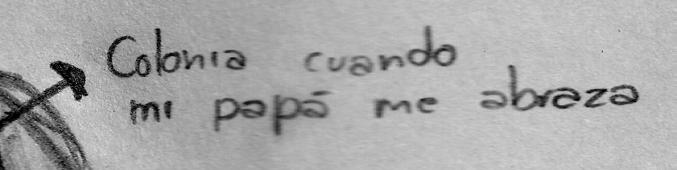 Colonia cuando
mi papá me abraza